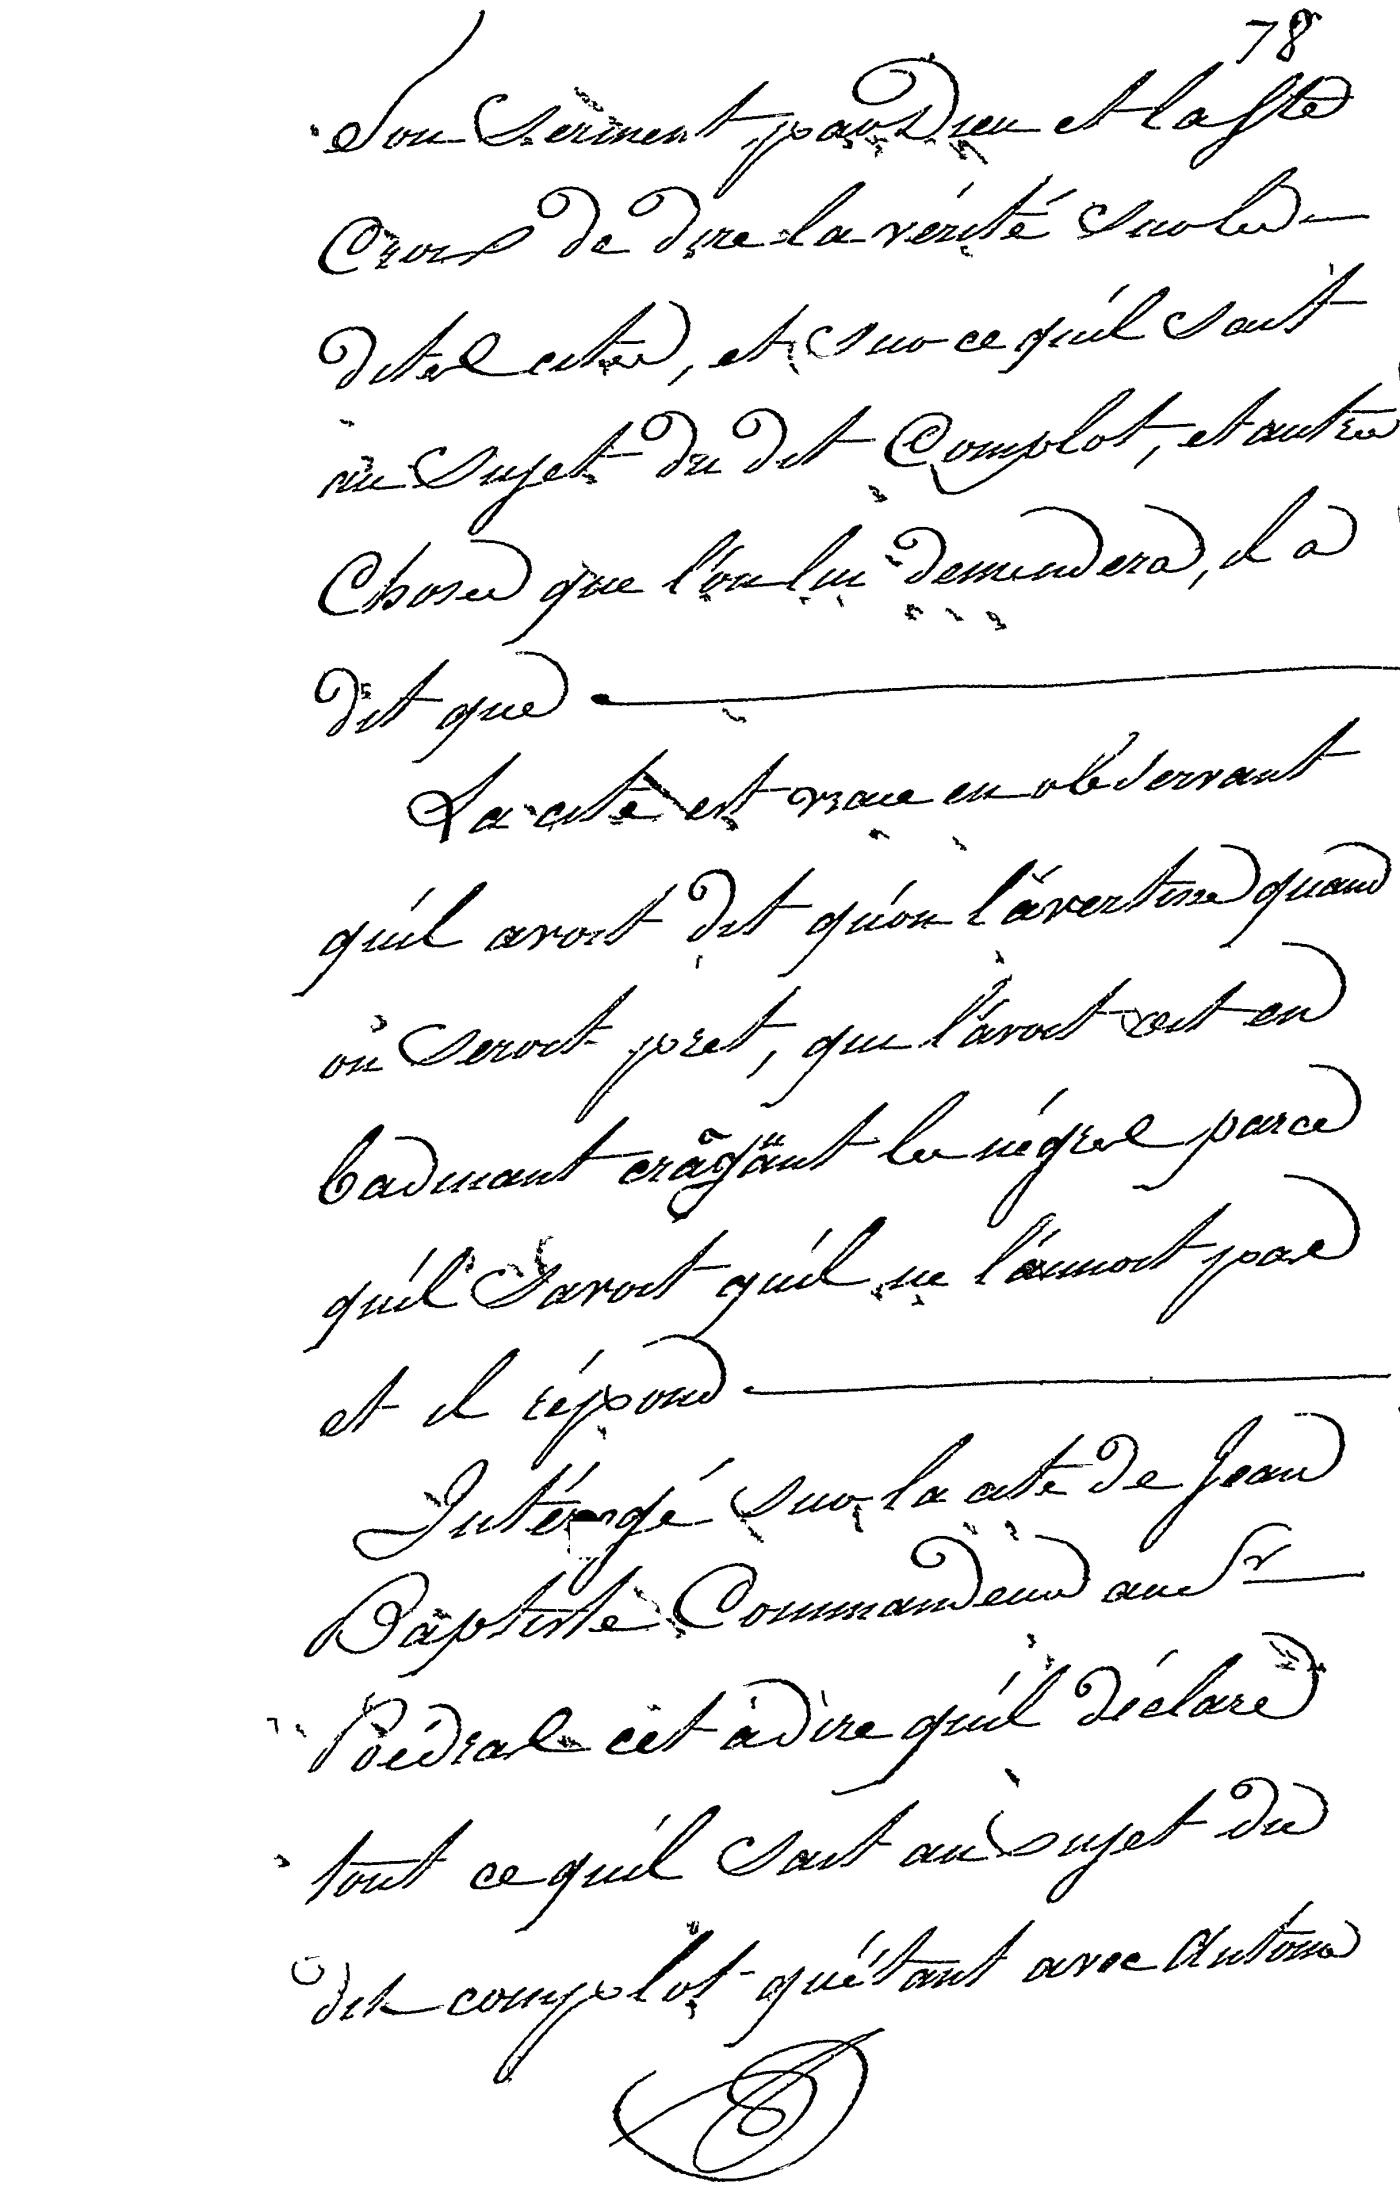 78
Son Serment par Dieu et la Ste
Croix de dire la vérité Sur les
dites cites, et Sur ce qu'il sait
au Sujet du dit Complot, et autres
Choses que l'on lui demendera, il a
dit que
La cite est vraie en observant
qu'il avoit dit qu'on l'avertisse quand
on Seroit pret, qui l'avoit dit en
badinant craÿant les négres parce
qu'il Savoit qu'il ne l'aimoit pas
et il répond
Intérogé Sur la cite de Jean
Baptiste Commandeur au Sr
Poédras cèt à dire qu'il déclare
tout ce qu'il Sait au Sujet du
dit complot qu'étant avec Antoine